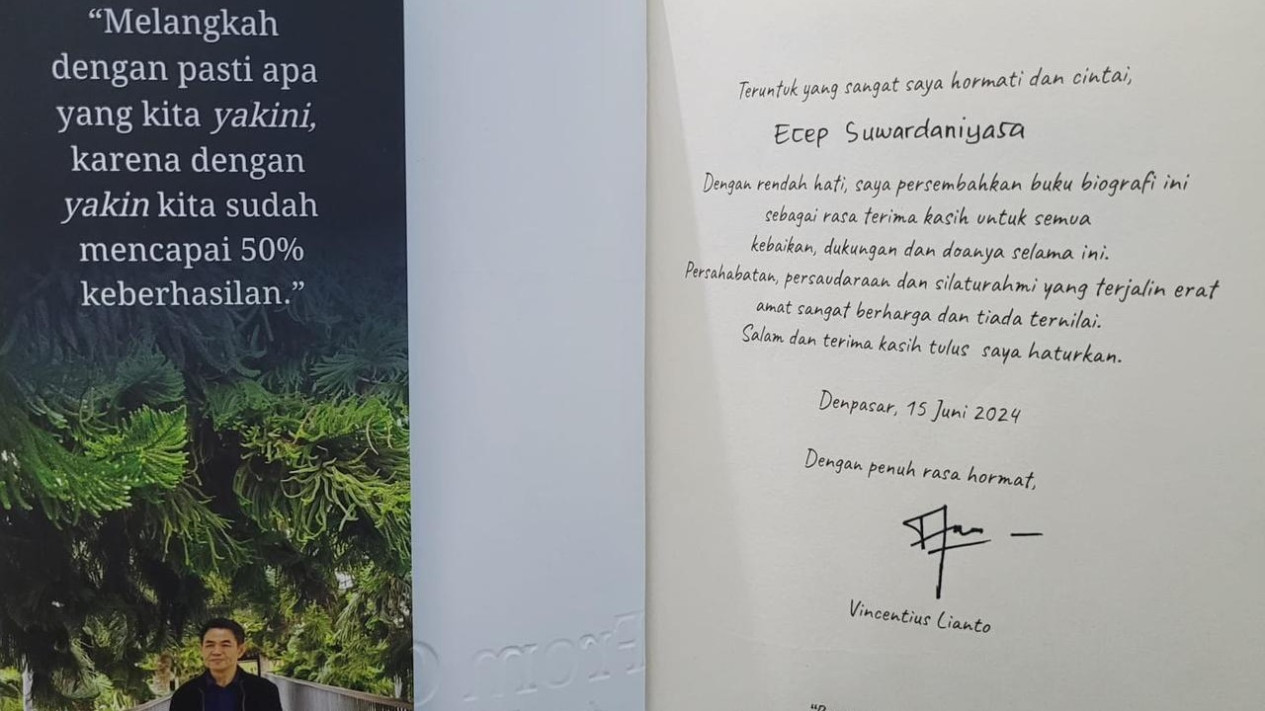 “Melangkah
dengan pasti apa
yang kita yakini,
karena dengan
yakin kita sudah
mencapai 50%
keberhasilan.”
From
Teruntuk yang sangat saya hormati dan cintai,
Ecep Suwardaniyasa
Dengan rendah hati, saya persembahkan buku biografi ini
sebagai rasa terima kasih untuk semua
kebaikan, dukungan dan doanya selama ini.
Persahabatan, persaudaraan dan silaturahmi yang terjalin erat
amat sangat berharga dan tiada ternilai.
Salam dan terima kasih tulus saya haturkan.
Denpasar, 15 Juni 2024
Dengan penuh rasa hormat,
Vincentius Lianto